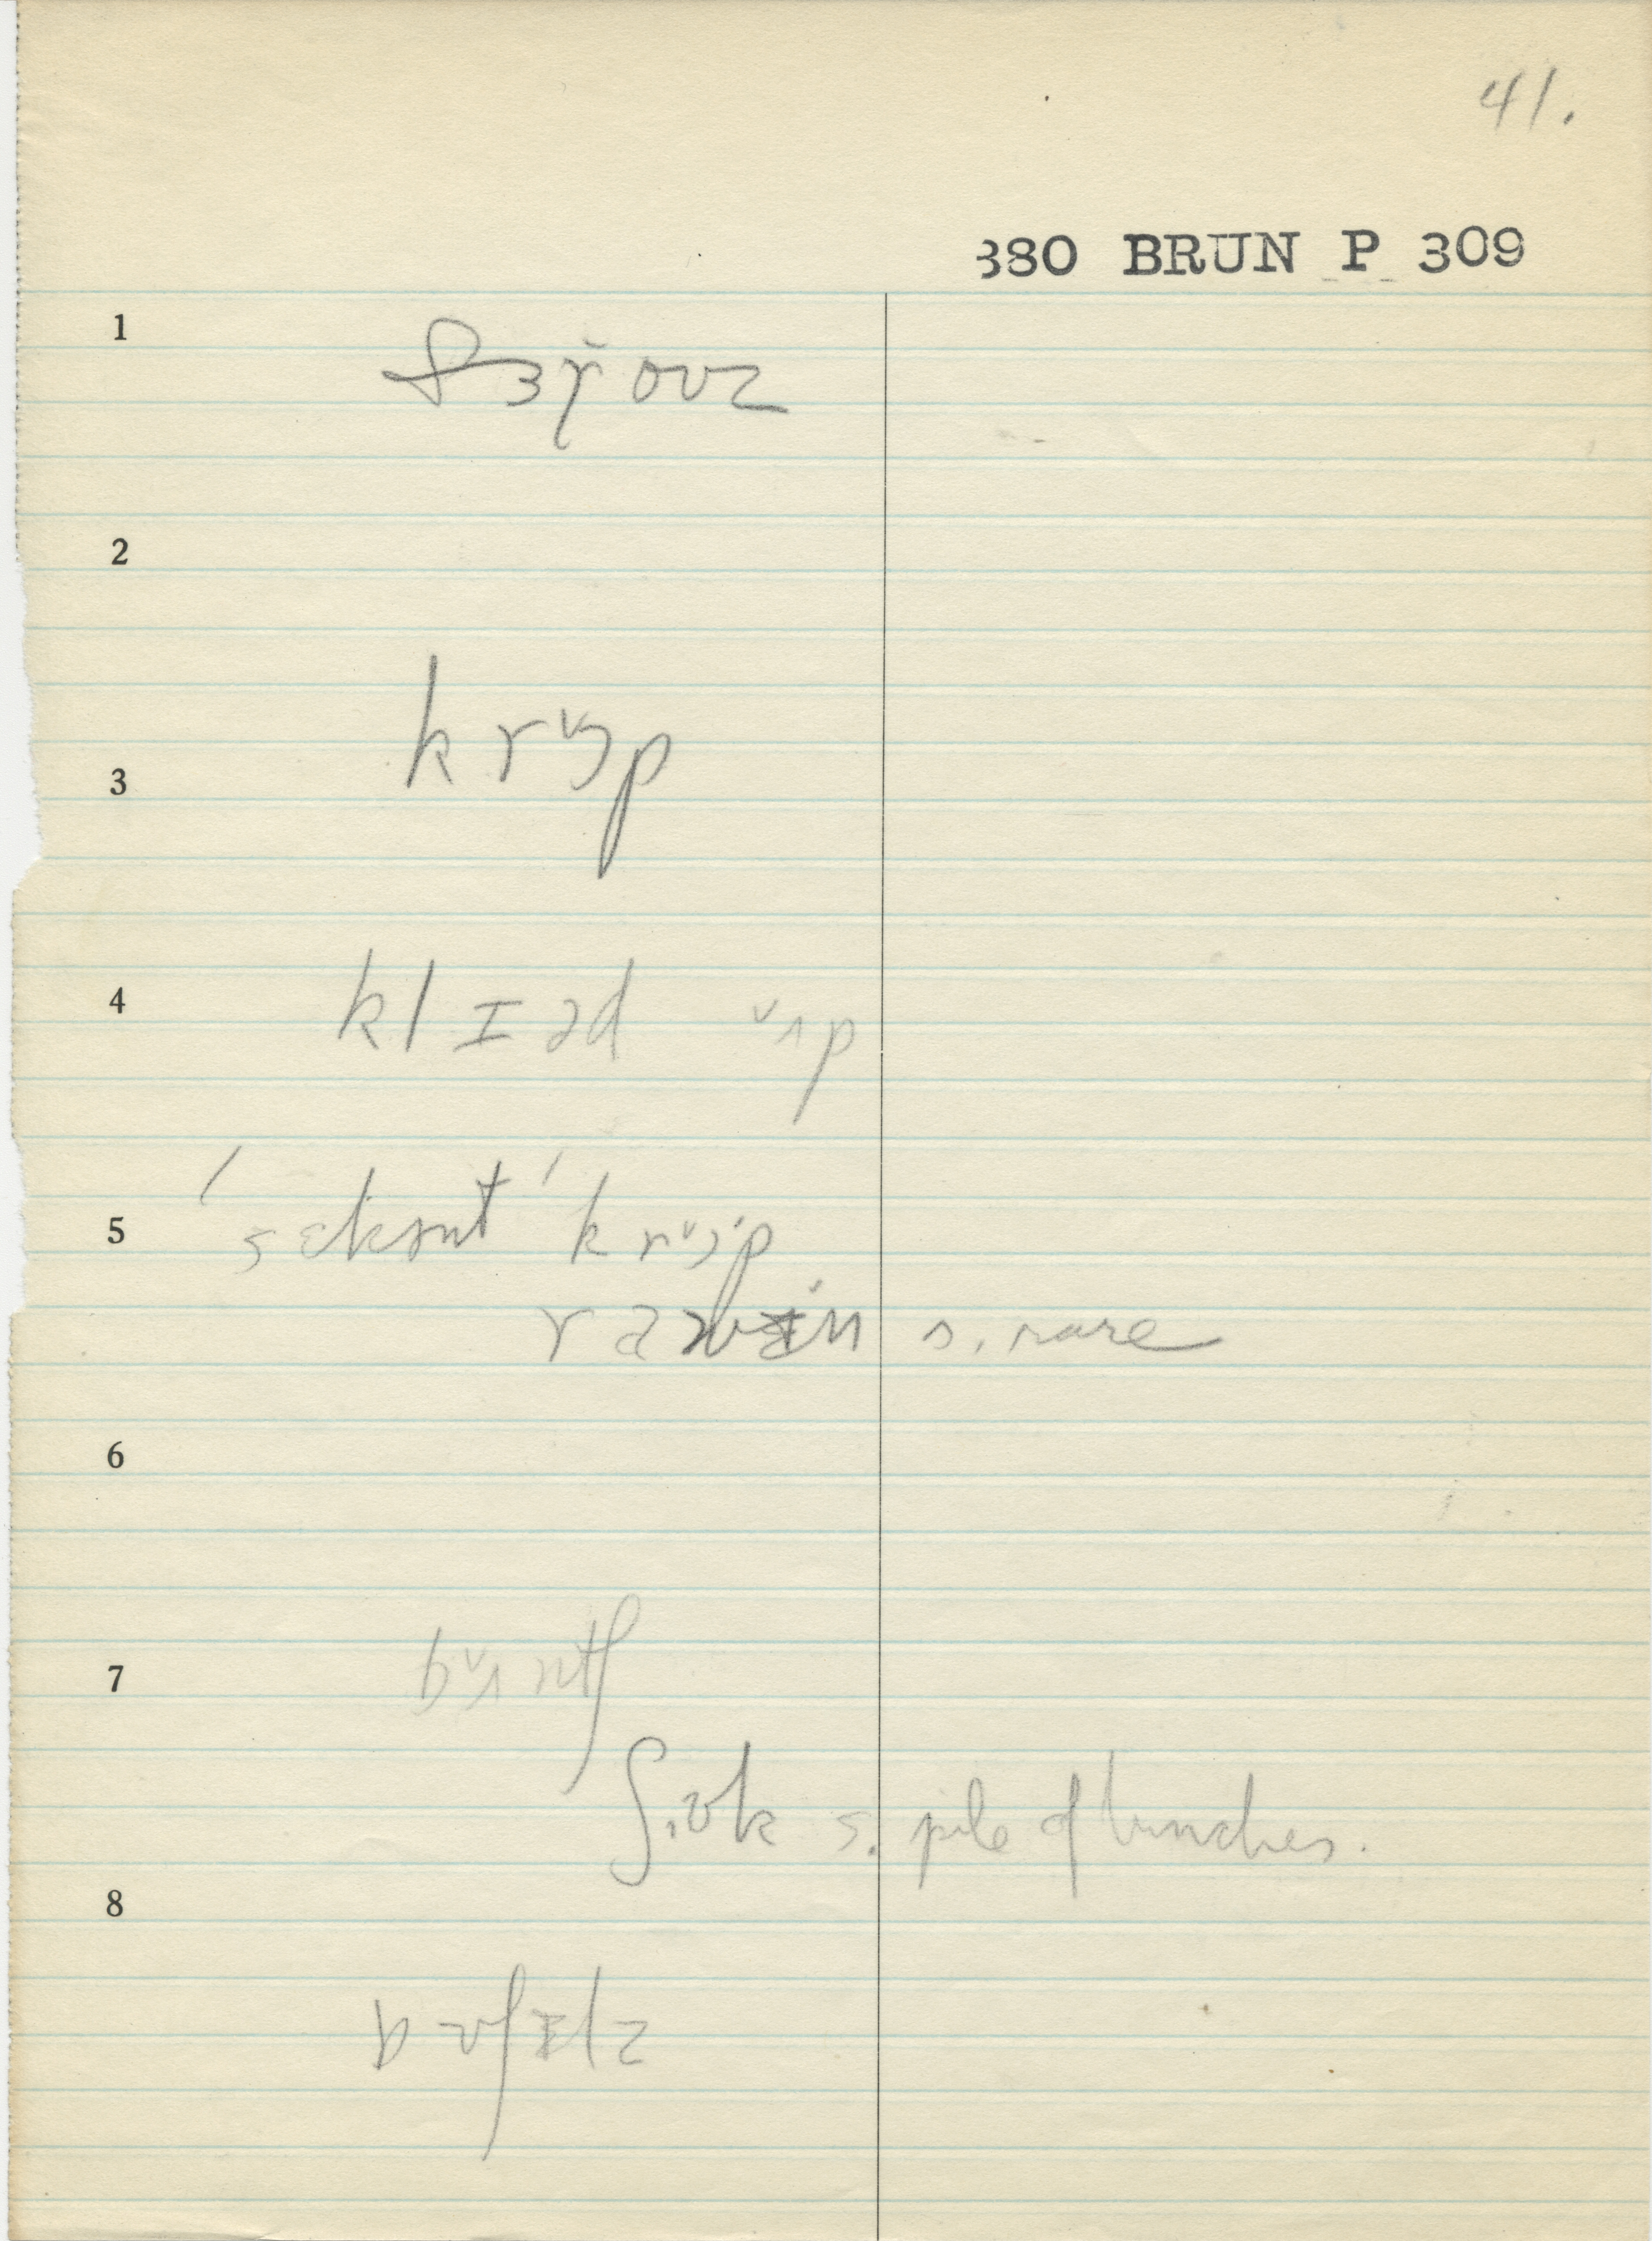 41.
380 BRUN P 309
1
fɝɣouz
2
3
krᵛɔp
4
klɪəd ᵛʌp
5
ˈsɛkənt ˈkrᵛɔp
rawɪn s. rare
6
7
bᵛʌntʃ
ʃ.ɒk s. pile of bunches.
8
bʊʃɪlz